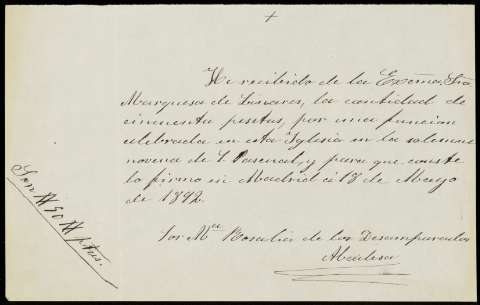 +
He recibido de la Exc̃ma. Sra.
Marquesa de Linares, la cantidad de
cincuenta pesetas, por una funcion
celebrada en esta Iglesia en la solemne
novena de S. Pascual, y para que conste
lo firmo en Madrid á 18 de Mayo
de 1892.
Sor Mª Rosalía de los Desamparados
Abadesa
Son # 50 # ptas.